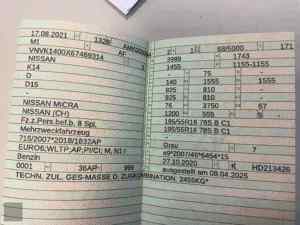 17.08.2021 1328
M1 AP
NISSAN
K14
D
D15
-
NISSAN MICRA
NISSAN (CH)
Fz.z.Pers.bef.b. 8 Spl.
Mehrzweckfahrzeug
715/2007*2018/1832AP
EURO6;WLTP;AP;PI/CI; M, N1 I
Benzin
0001 - 36AP 999
TECHN. ZUL. GES-MASSE D. ZUGKOMBINATION: 2455KG*
2 1 68/5000 171
3999 1743
1455 1155-1155
- 75 -
140 1555 1555
825 810 -
825 810 -
76 3750 67
1200 555 5 -
195/55R16 785 B C1
195/55R16 785 B C1
-
Grau 7
e9*2007/46*6464*15
27.10.2020 K HD213426
ausgestellt am 08.04.2025